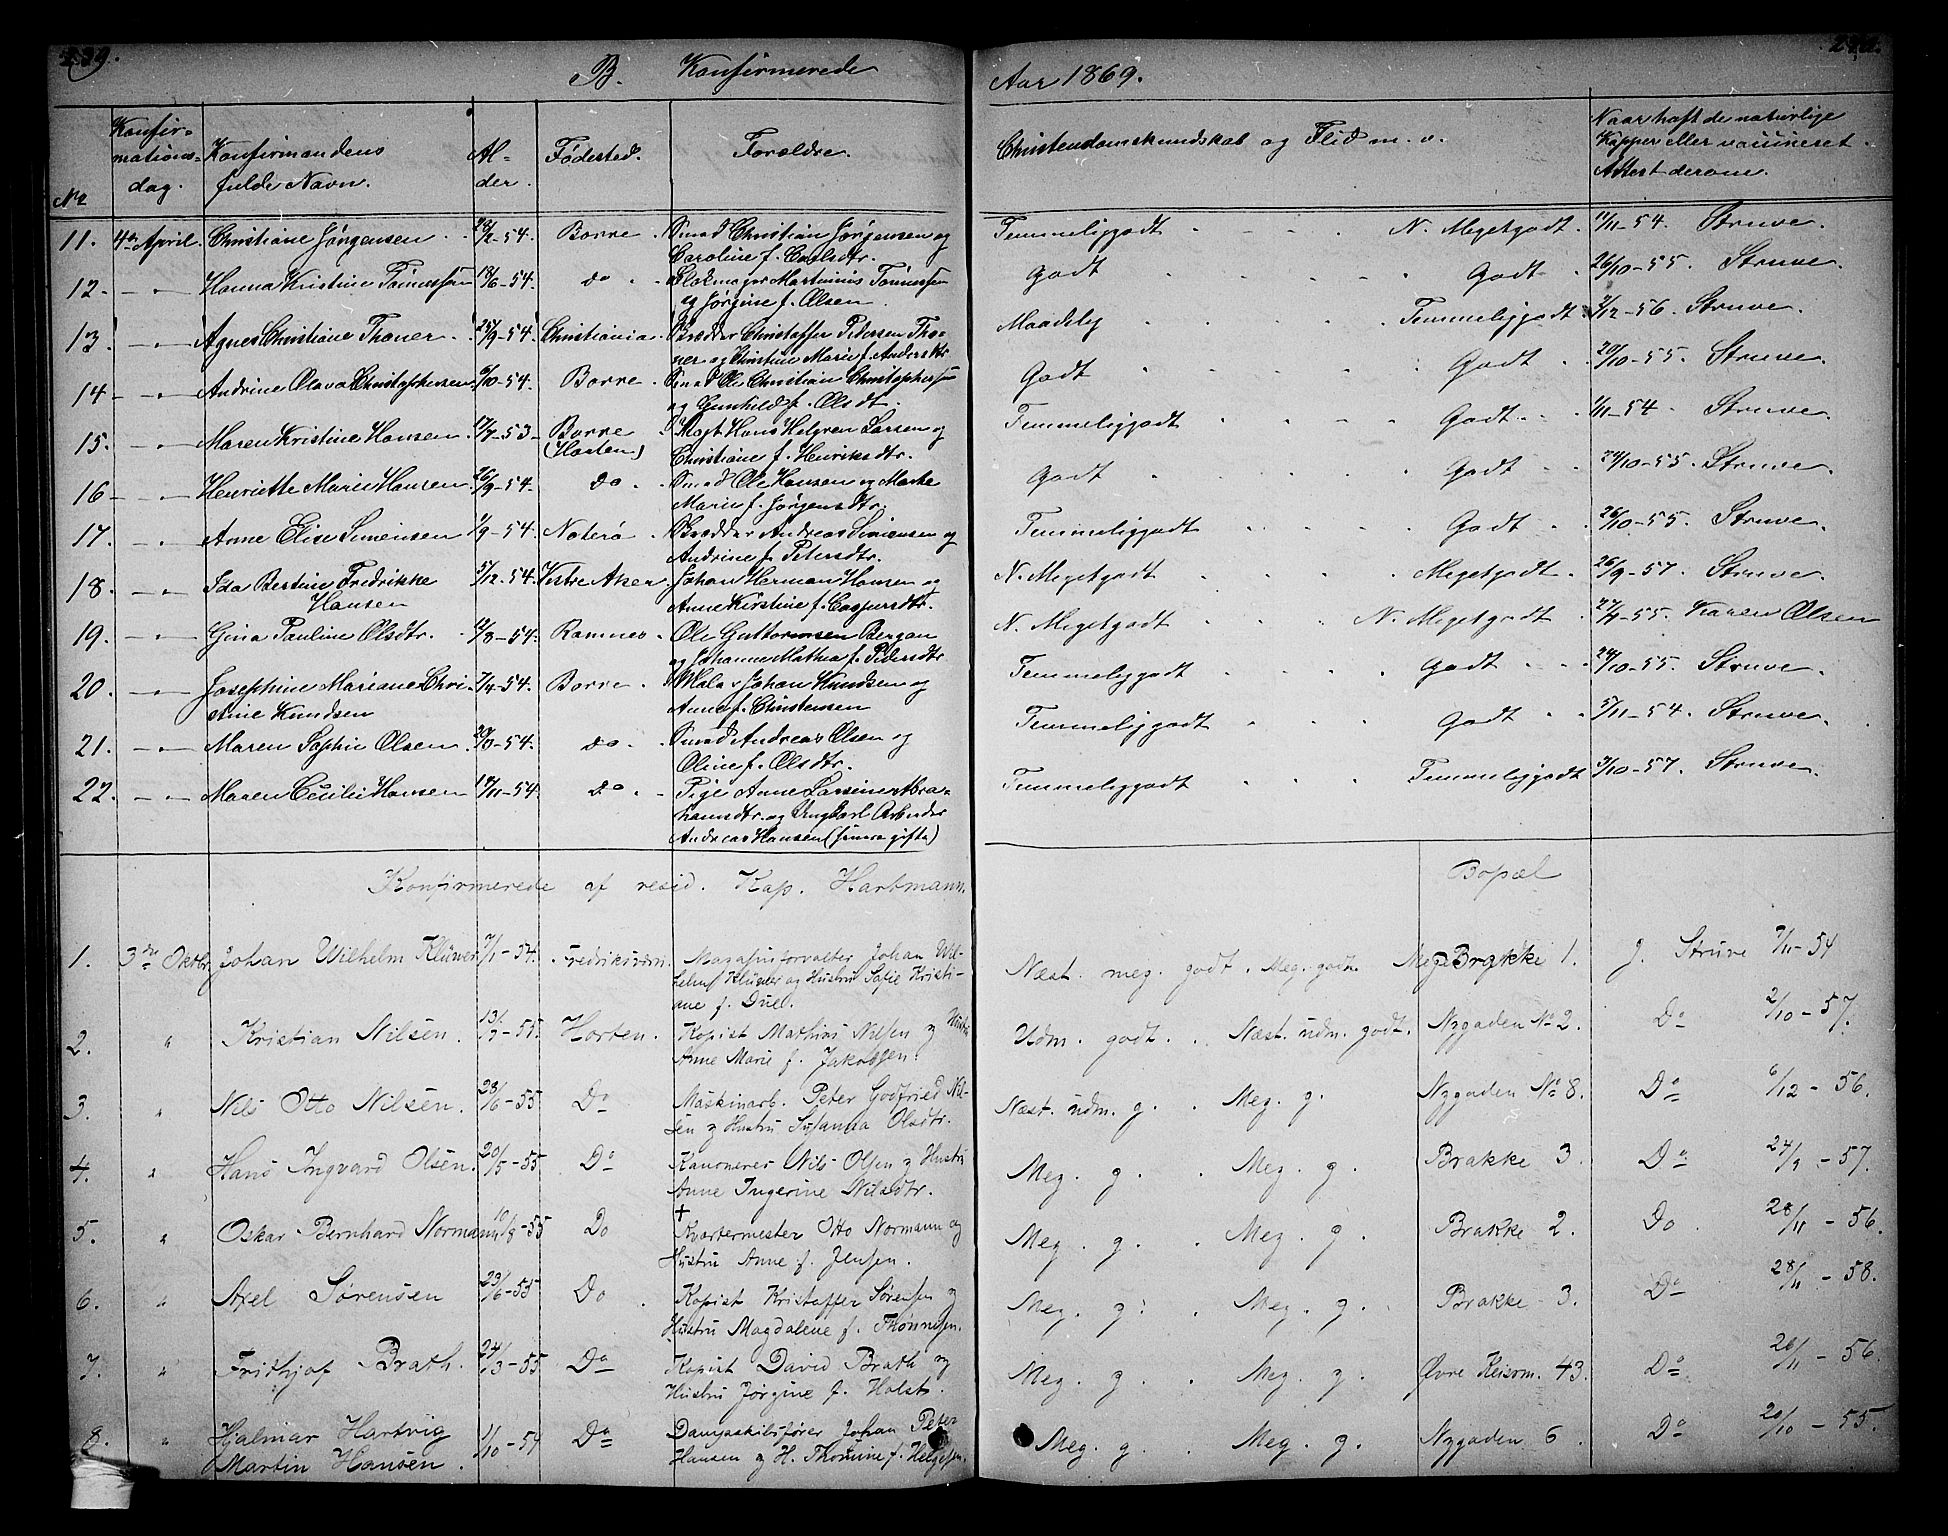 239.
B. Konfirmerede
Aar 1869.
No
Konfir-
mations-
dag.
Konfirmandens
fulde Navn.
Al-
der.
Fødested.
Forældre.
Christendomskundskab og Flid m. v.
Naar haft de naturlige
Kopper eller vaccineret.
Attest derom.
11. 4de April. Christiane Jørgensen. 28/2-54. Borre. Smed Christian Jørgensen og
Caroline f. Carlsdtr.
Temmeliggodt N. Megetgodt. 11/11-54. Struve.
12. — " — Hanna Kristine Tønnessen 18/6-54. do Blokmager Martinius Tønnessen
og Jørgine f. Olsen.
Godt Godt. 26/10-55. Struve.
13. — " — Agnes Christiane Thoner. 25/9-54. Christiania. Bødker Christoffer Pedersen Tho-
ner og Christine Marie f. Andersdtr.
Maadelig Temmeliggodt. /12-56. Struve.
14 — " — Andrine Olava Christophersen 6/10-54. Borre. Smed Ole Christian Christophersen
og Gunhild f. Olsdt.
Godt Godt. 20/10-55. Struve.
15. — " — Maren Kristine Hansen. 17/7-53 Borre
(Horten)
Hans Helgren Larsen og
Christiane f. Henriksdtr.
Temmeliggodt Godt. 1/11-54. Struve.
16 — " — Henriette Marie Hansen. 26/9-54. do. Smed Ole Hansen og
Marie f. Jørgensdtr.
Godt Godt. 24/10-55. Struve.
17. — " — Anne Elise Simensen 1/9-54. Noterø. Bødker Andreas Simensen og
Andrine f. Petersdtr.
Temmeliggodt Godt. 26/10-55. Struve.
18. — " — Ida Bertine Fredrikke
Hansen
5/12-54. Vestre Aker. Johan Herman Hansen og
Anne Kirstine f. Caspersdtr.
N. Megetgodt Megetgodt. 26/9-57. Struve.
19. — " — Gina Pauline Olsdtr. 12/8-54. Ramnes. Ole Guttormsen Bergan
og Johanne Mathea f. Pedersdtr
N. Megetgodt N. Megetgodt 27/7-55. Karen Olsen
20. — " — Josephine Mariane Chri-
stine Knudsen
7/4-54. Borre. Maler Johan Knudsen og
Anne f. Christensen
Temmeliggodt Godt 24/10-55. Struve.
21. — " — Maren Sophie Olsen. 20/3-54. do. Smed Andreas Olsen og
Oline f. Olsdtr.
Temmeliggodt Godt 5/11-54. Struve.
22. — " — Maren Cecilie Hansen 19/11-54. do. Pige Anne Larsine Abra-
hamsdtr. og Ungkarl Arbeider
Andreas Hansen (senere gifte)
Temmeliggodt Temmeliggodt /10-57. Struve.
Konfirmerede af resid. Kap. Hartmann.
Bopæl
1. 3die Oktbr. Johan Wilhelm Klüwer 7/1-54. Fredriksværn. Magasinforvalter Johan Wil-
helm Klüwer og Hustru Sofie Kristi-
ane f. Due.
Næst. meg. godt. Meg. godt. Brakke 1. J. Struve 7/11-54
2. " Kristian Nilsen. 13/7-55. Horten. Kopist Mathius Nilsen og Hustru
Anne Marie f. Jakobsen.
Udm. godt. Næst. udm. godt. Nygaden No 2. Do 2/10-57.
3. " Nils Otto Nilsen. 28/6-55 Do Maskinarb. Peter Godtfried Nil-
sen og Hustru Susanna Olsdtr.
Næst. udm. g. Meg. g. Nygaden No 8. Do 6/12-56.
4. " Hans Ingvard Olsen. 20/5-55 Do Kanonerer Nils Olsen og Hustru
Anne Ingerine Nilsdtr.
Meg. g. Meg. g. Brakke 3. Do 24/9-57.
5. " Oskar Bernhard Normann 10/8-55 Do † Kvartermester Otto Normann og
Hustru Anne f. Jensen.
Meg. g. Meg. g. Brakke 2. Do 28/11-56.
6. " Axel Sørensen 23/6-55 Do Kopist Kristoffer Sørensen og
Hustru Magdalene f. Thønnesen.
Meg. g. Meg. g. Brakke 3. Do 28/11-58.
7. " Frithjof Brath. 24/3-55 Do Kopist David Brath og
Hustru Jørgine f. Holst.
Meg. g. Meg. g. Øvre Keiserm. 43. Do 26/11-56.
8. " Hjalmar Hartvig
Martin Hansen.
11/10-54 Do Dampskibsfører Johan Peter
Hansen og H. Thomine f. Helgesen.
Meg. g. Meg. g. Nygaden 6. Do 20/10-55.